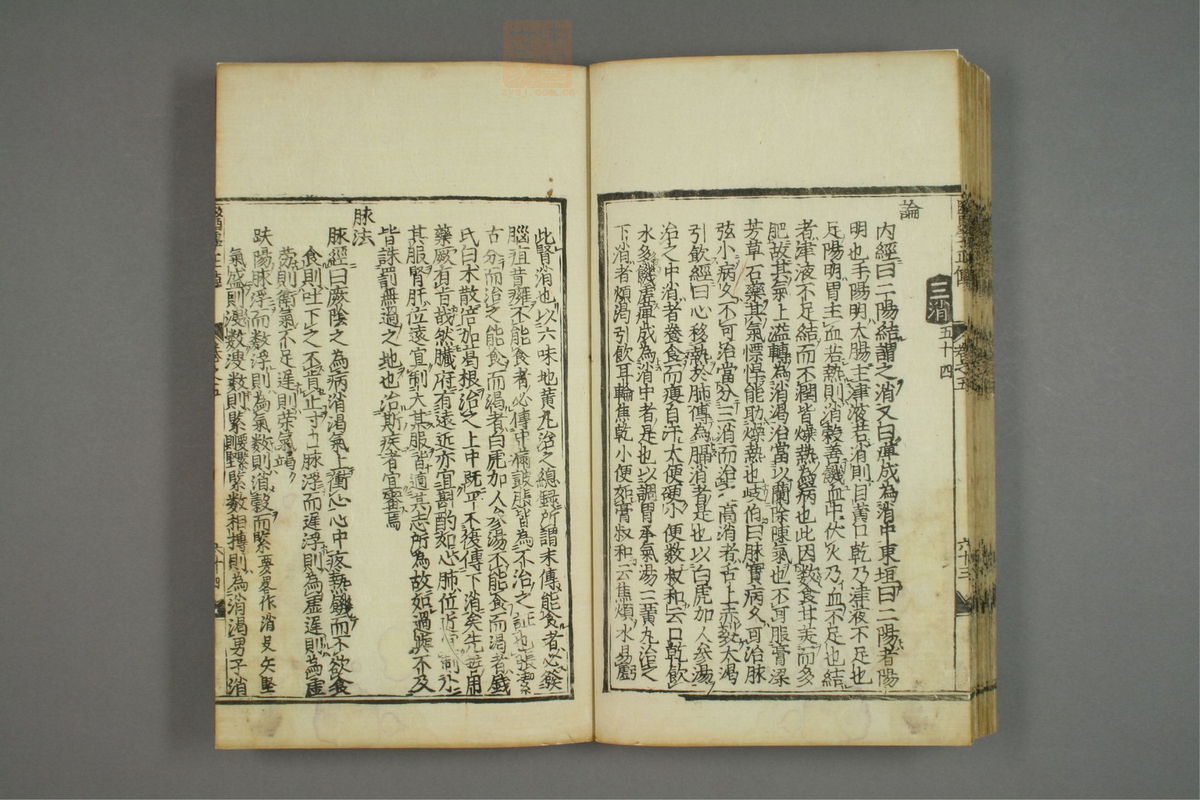 三消 五十四
論
內經曰二陽結謂之消又曰癉成為消中東垣曰二陽者陽
明也手陽明大腸主津液若消則目黃口乾乃津液不足也
足陽明胃主血若熱則消穀善飢血中伏火乃血不足也結
者津液不足結而不潤皆燥熱為病也此因數食甘美而多
肥故其氣上溢轉為消渴治當以蘭除陳氣也不可服膏粱
芳草石藥其氣慓悍能助燥熱也岐伯曰脉實病久可治脉
弦小病久不可治當分三消而治高消者舌上赤裂大渴
引飲經曰心移熱於肺傳為膈消者是也以白虎加人參湯
治之中消者善食而瘦自汗大便硬小便數叔和云口乾飲
水多饑虛癉成為消中者是也以調胃承氣湯三黃丸治之
下消者煩渴引飲耳輪焦乾小便如膏叔和云焦煩水易虧
六十三
此腎消也以六味地黃丸治之總錄所謂末傳能食者必發
腦疽背癰不能食者必傳中滿鼓脹皆為不治之證也張潔
古分而治之能食而渴者白虎加人參湯不能食而渴者錢
氏白朮散倍加葛根治之上中既平不復傳下消矣先哲用
藥厥有旨哉然臟府有遠近亦宜斟酌如心肺位近宜制小
其服腎肝位遠宜制大其服皆適其志所為故如過與不及
皆誅罰無過之地也治斯疾者宜審焉
脉法
脉經曰厥陰之為病消渴氣上衝心心中疼熱饑而不欲食
食則吐下之不肯止寸口脉浮而遲浮則為虛遲則為虛
勞則衛氣不足遲則榮氣竭
趺陽脉浮而數浮則為氣數則消穀而緊要畧作消叟大堅
氣盛則溲數溲數則緊堅緊數相搏則為消渴男子消
六十四